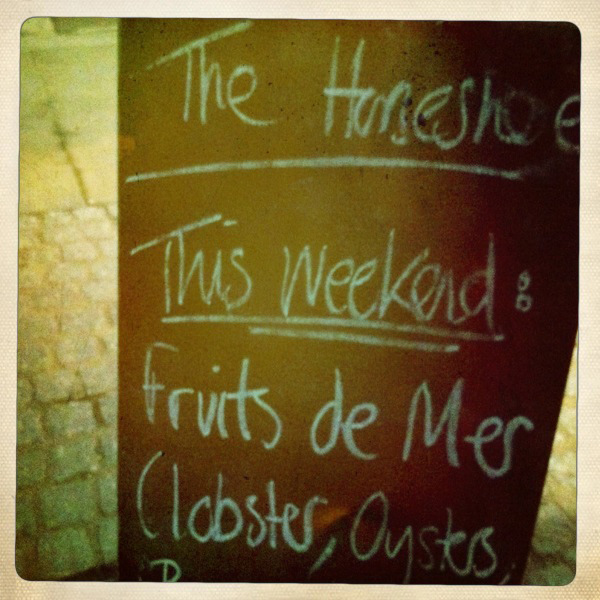 The Horseshoe
This Weekend:
Fruits de Mer
(lobster, Oysters,